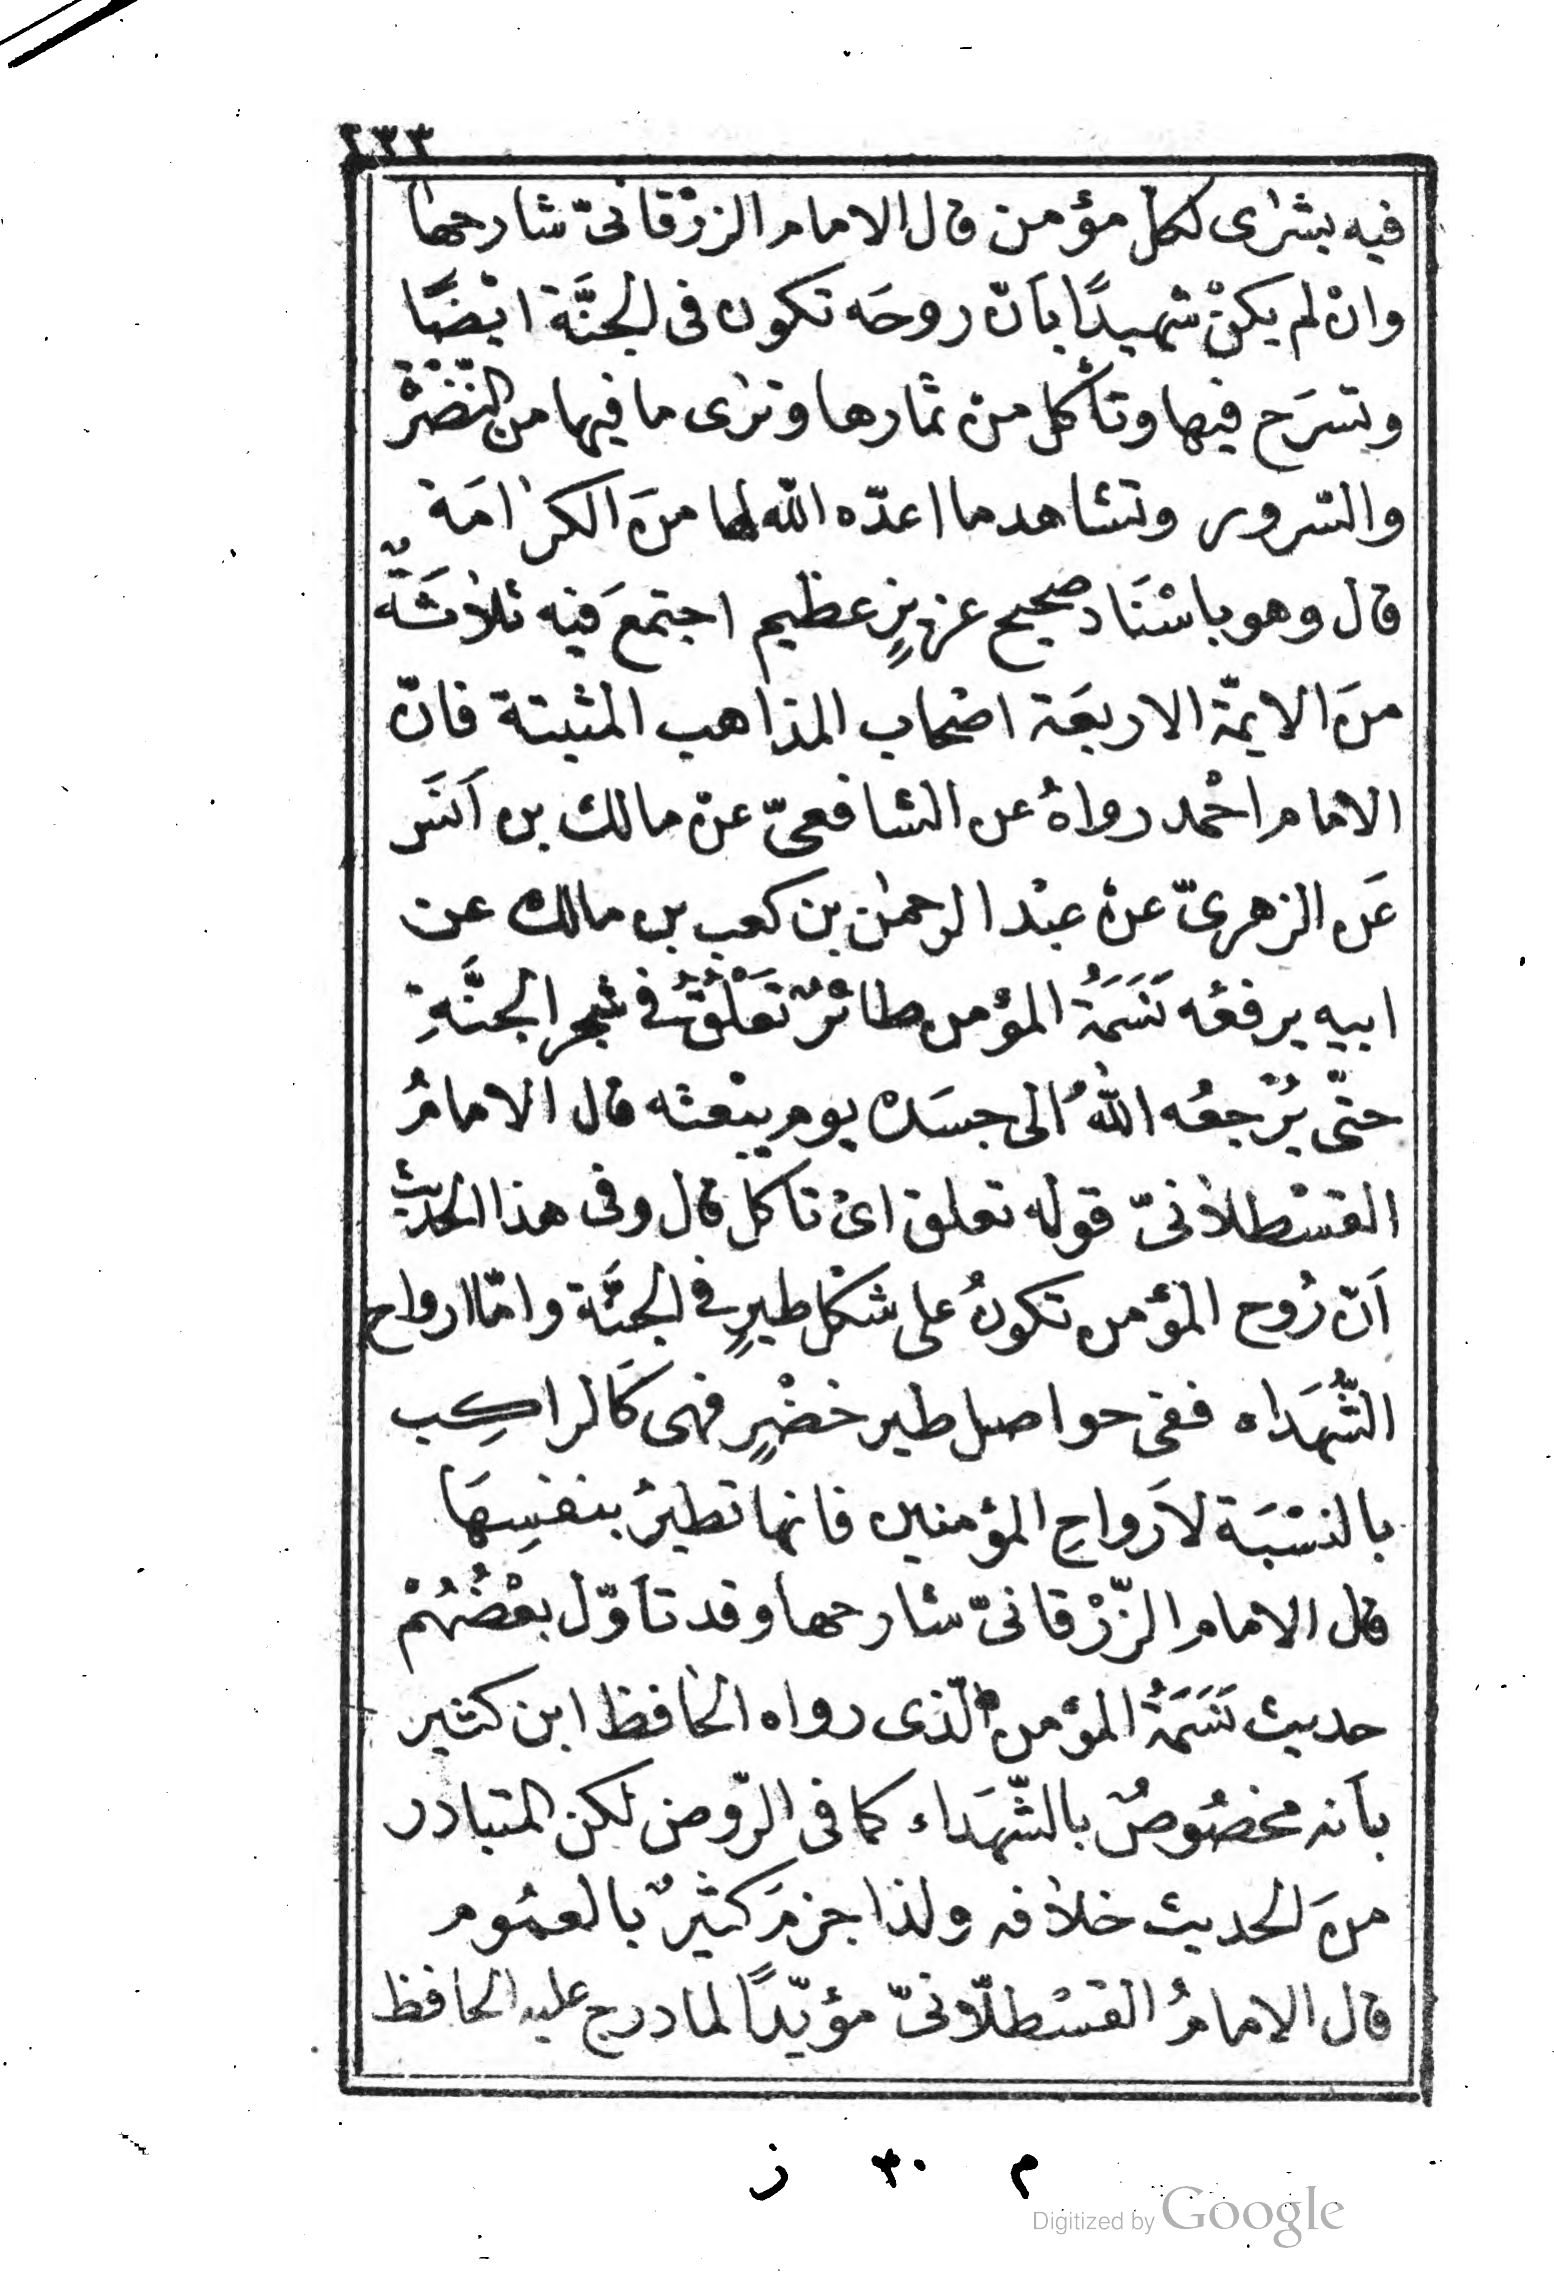 ٢٣٣
فيه بشرٰى لكلّ مؤمن قال الامام الزرْقانىّ شارحها
وانْ لم يكنْ شهيدًا بأنّ روحَه تكون فى الجنَّة ايْضًا
وتسرَح فيها وتأكل منْ ثمارها وترٰى ما فيها من النّضْرَةِ
والسّرور وتشاهد ما اعدّه اللّه لها منَ الكرٰامَة
قال وهو باسْنَاد صحيح عزيزٍ عظيم اجتمعَ فيه ثلاٰثَةٌ
منَ الايمّة الاربعَة اصْحاب المذاهب المثبتة فانّ
الامام احْمد رواهُ عن الشافعىّ عنْ مالك بن اَنَس
عَن الزهرىّ عنْ عبْد الرحمٰن بن كعب بن مالك عن
ابيه يرفعُه نَسَمَةُ المؤمن طائرٌ تَعَلْقُ في شجر الجنَّةِ
حتّى يُرْجعُه اللّهُ الى جسَده يوم يبْعثه قال الامامُ
القسْطلاٰنىّ قوله تعلق اىْ تاكل قال وفى هذا الحديث
اَنّ رُوح المؤمن تكونُ على شكْل طيرٍ في الجنَّة وامّا ارواح
الشّهَداء ففى حواصل طير خضْرٍ فهى كَالراكِب
بالنسْبَة لاَرواحِ المؤمنين فانها تطيرُ بنفسِهَا
قال الامام الزّرْقانىّ شارحها وقد تأوّل بعْضُهُمْ
حديث نَسَمَةُ المؤمن الّذى رواه الحافظ ابن كثير
بأنه مخصُوصٌ بالشّهَداء كما فى الرّوض لكن المتبادر
منَ الحديث خلاٰفه ولذا جزمَ كثيرٌ بالعمُوم
قال الامامُ القسْطلاّنىّ مؤيّدًا لما درج عليه الحافظ
م ٣٠ ز
Digitized by Google